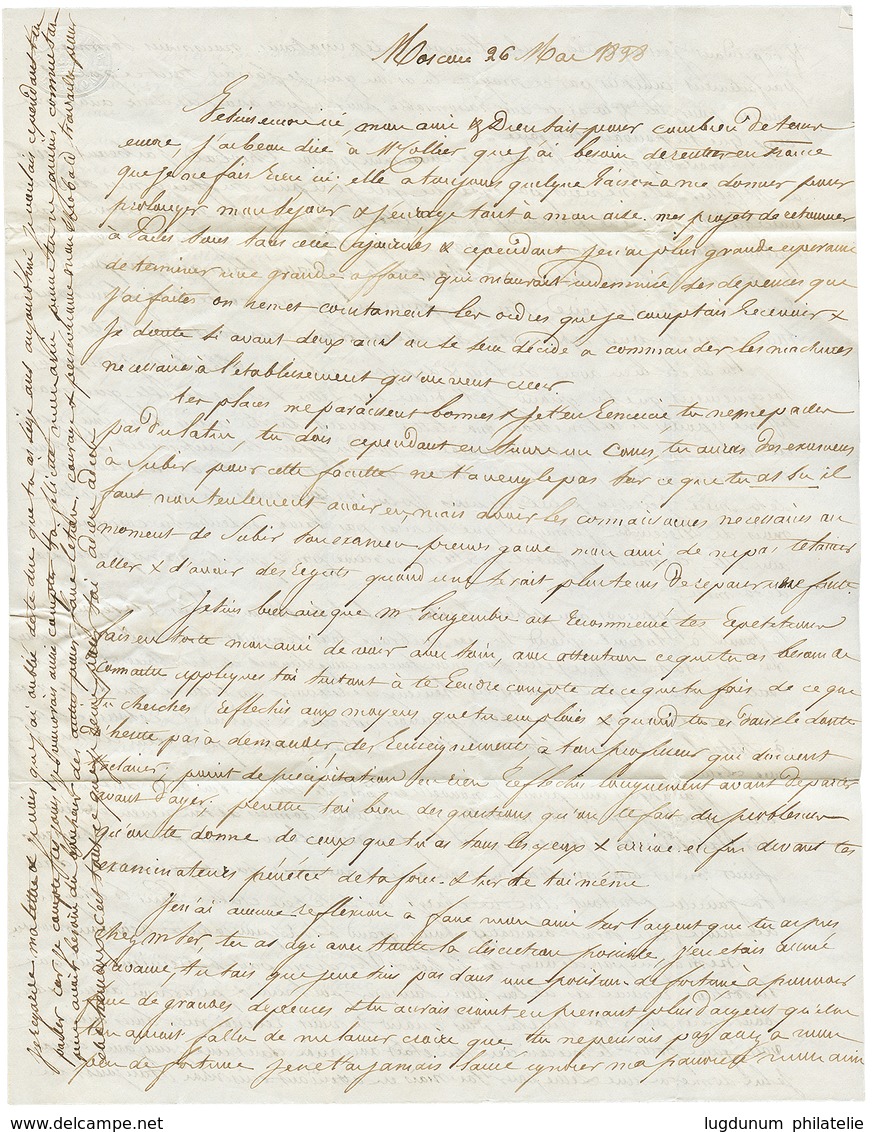 Moscou 26 Mai 1838
Je suis encore ici, mon ami & Dieu sait pour combien de tems
encore, j'ai beau dire à Mr Collier que j'ai besoin de rentrer en France
que je ne fais rien ici, elle a toujours quelque raison a me donner pour
prolonger mon sejour & j'enrage tout à mon aise, mes projets de retourner
à Paris sont tous ajournés & cependant je n'ai plus grande esperance
de terminer une grande affaire qui m'aurait indemnisé des depences que
j'ai faites on remet constament les ordres que je comptais recevoir &
Je doute si avant deux ans on se sera décidé a commander les machines
necessaires à l'etablissement qu'on veut creer
tes places me paraissent bonnes & je t'en remercie tu ne me parles
pas du latin, tu dois cependant en suivre un cours, tu auras des examens
à subir pour cette faculté ne t'aveugle pas sur ce que tu as su il
faut non seulement avoir eu, mais avoir les connaissances necessaires au
moment de subir ton examen prens garde mon ami de ne pas te laisser
aller & d'avoir des regrets quand il ne serait plus tems de reparer une faute.
Je suis bien aise que Mr Gingembre ait recommencé tes repetitions
fais en sorte mon ami de voir avec soin, avec attention ce que tu as besoin de
connaitre appliques toi surtout à te rendre compte de ce que tu fais de ce que
tu cherches reflechis aux moyens que tu emploies & quand tu es dans le doute
n'hesite pas à demander des renseignements à ton professeur qui doivent
t'eclairer, point de précipitation en rien reflechis longuement avant de parler
avant d'agir, penetre toi bien des questions qu'on te fait du problème
qu'on te donne de ceux que tu as sous les yeux & arrive enfin devant tes
examinateurs pénétré de ta force & sur de toi même
Je n'ai aucune reflexion à faire mon ami sur l'argent que tu as pris
chez Mr, tu as agi avec toute la discretion possible, j'en etais
d'avance tu sais que je ne suis pas dans une position de fortune à pouvoir
faire de grandes depences & tu aurais craint en prenant plus d'argent qu'il ne
t'en aurait fallu de me laisser croire que tu ne pensais pas assez a mon
peu de fortune je ne t'ai jamais laissé ignorer ma pauvreté mon ami
je regarde ma lettre & je vois que j'ai oublié de te dire que tu as seize ans aujourd'hui je voulais cependant t'en
parler car je compte les jours
mon ami besoin du des autres pour
tout ce que je desire pour toi adieu adieu
lugdunum philatelie